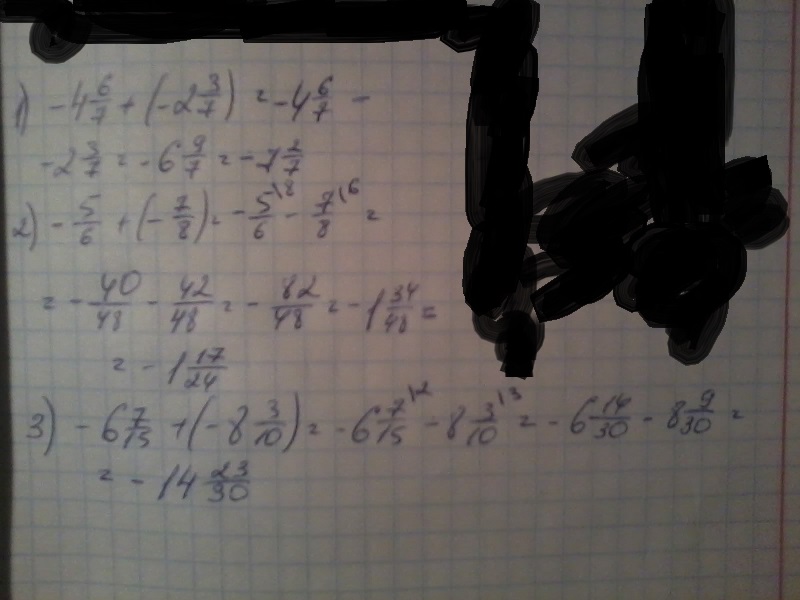 1) -4 6/7 + (-2 3/7) = -4 6/7 -
-2 3/7 = -6 9/7 = -7 2/7
2) -5/6 + (-7/8) = -5/6 \8 - 7/8 \6 =
= -40/48 - 42/48 = -82/48 = -1 34/48 =
= -1 17/24
3) -6 7/15 + (-8 3/10) = -6 7/15 \2 - 8 3/10 \3 = -6 14/30 - 8 9/30 =
= -14 23/30